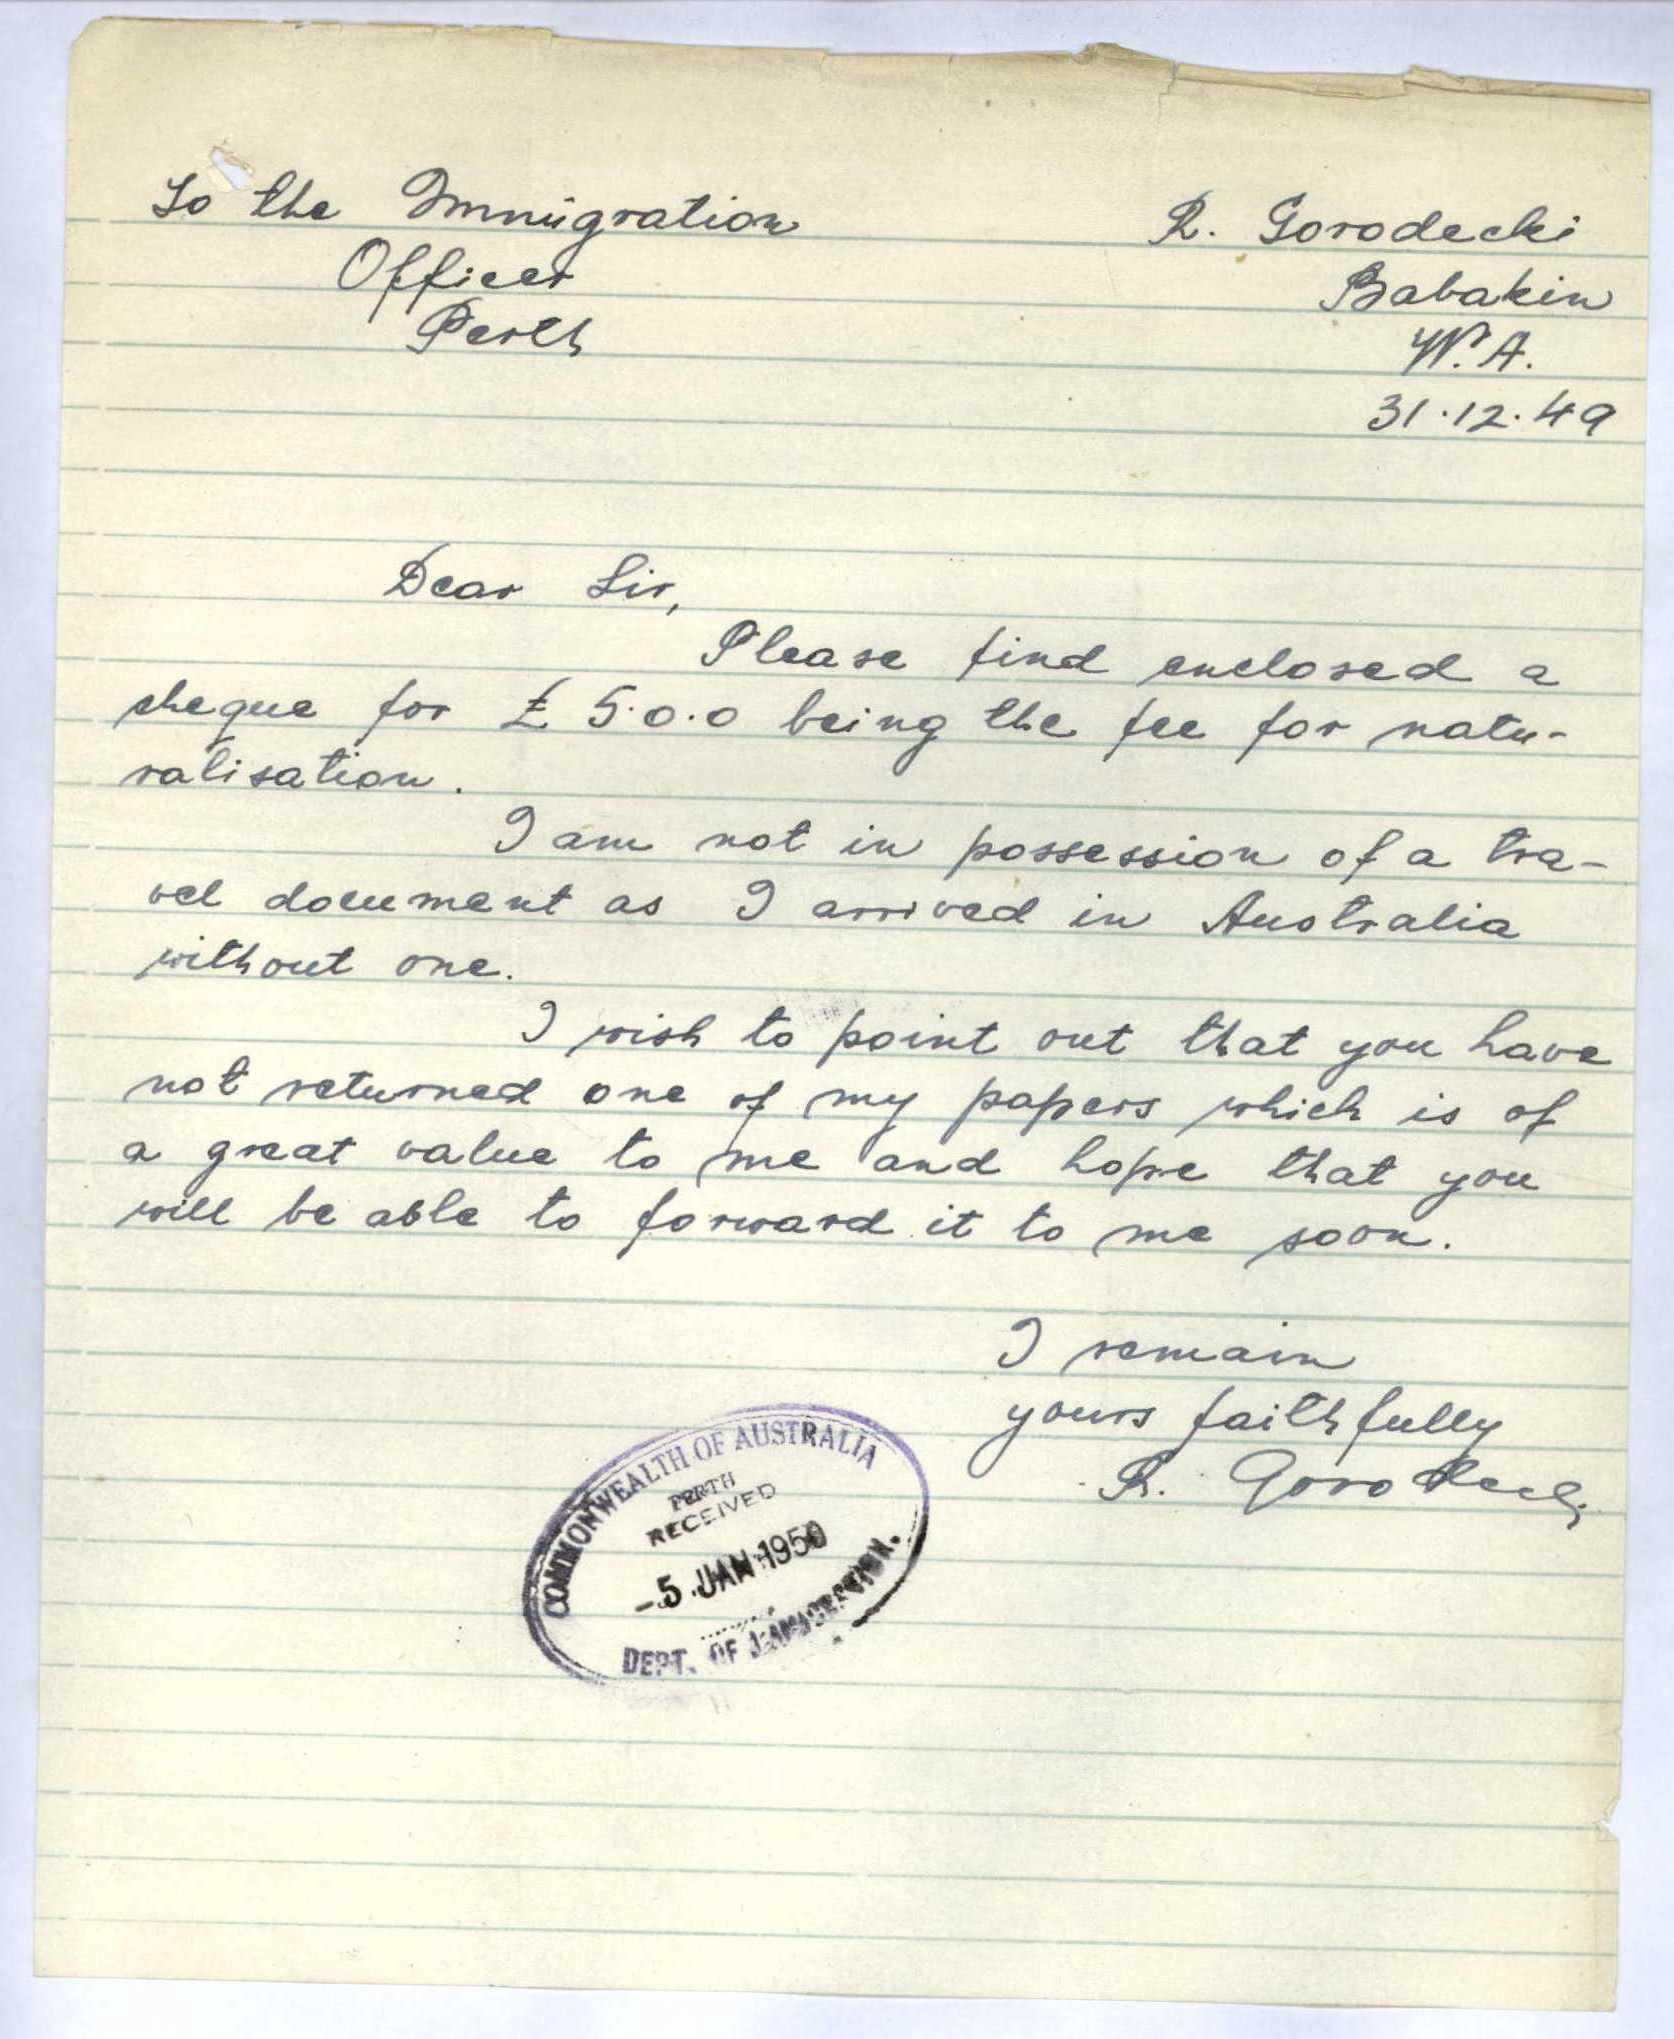 To the Immigration
Officer
Perth
R. Gorodecki
Babakin
W.A.
31.12.49
Dear Sir,
Please find enclosed a
cheque for £ 5.0.0 being the fee for natu-
ralisation.
I am not in possession of a tra-
vel document as I arrived in Australia
without one.
I wish to point out that you have
not returned one of my papers which is of
a great value to me and hope that you
will be able to forward it to me soon.
I remain
yours faithfully
R. Gorodecki
COMMONWEALTH OF AUSTRALIA
PERTH
RECEIVED
-5 JAN 1950
DEPT. OF IMMIGRATION.